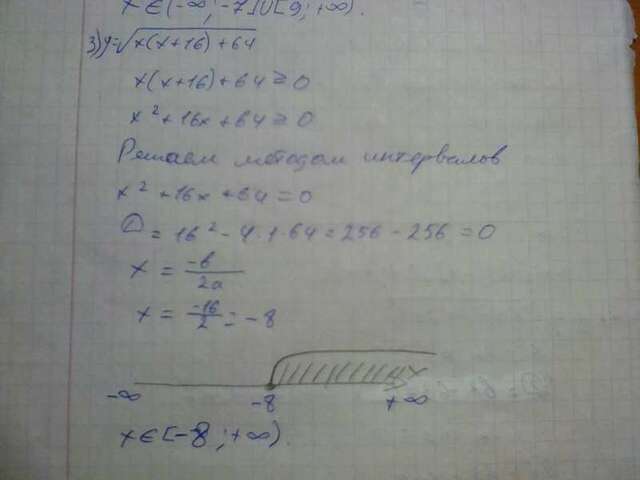 x ∈ (-∞; -7] ∪ [9; +∞).
3) y = √x(x+16)+64
x(x+16)+64 ≥ 0
x² + 16x + 64 ≥ 0
Решаем методом интервалов
x² + 16x + 64 = 0
D = 16² - 4·1·64 = 256 - 256 = 0
x = -b/2a
x = -16/2 = -8
-∞ -8 +∞
x ∈ [-8; +∞).